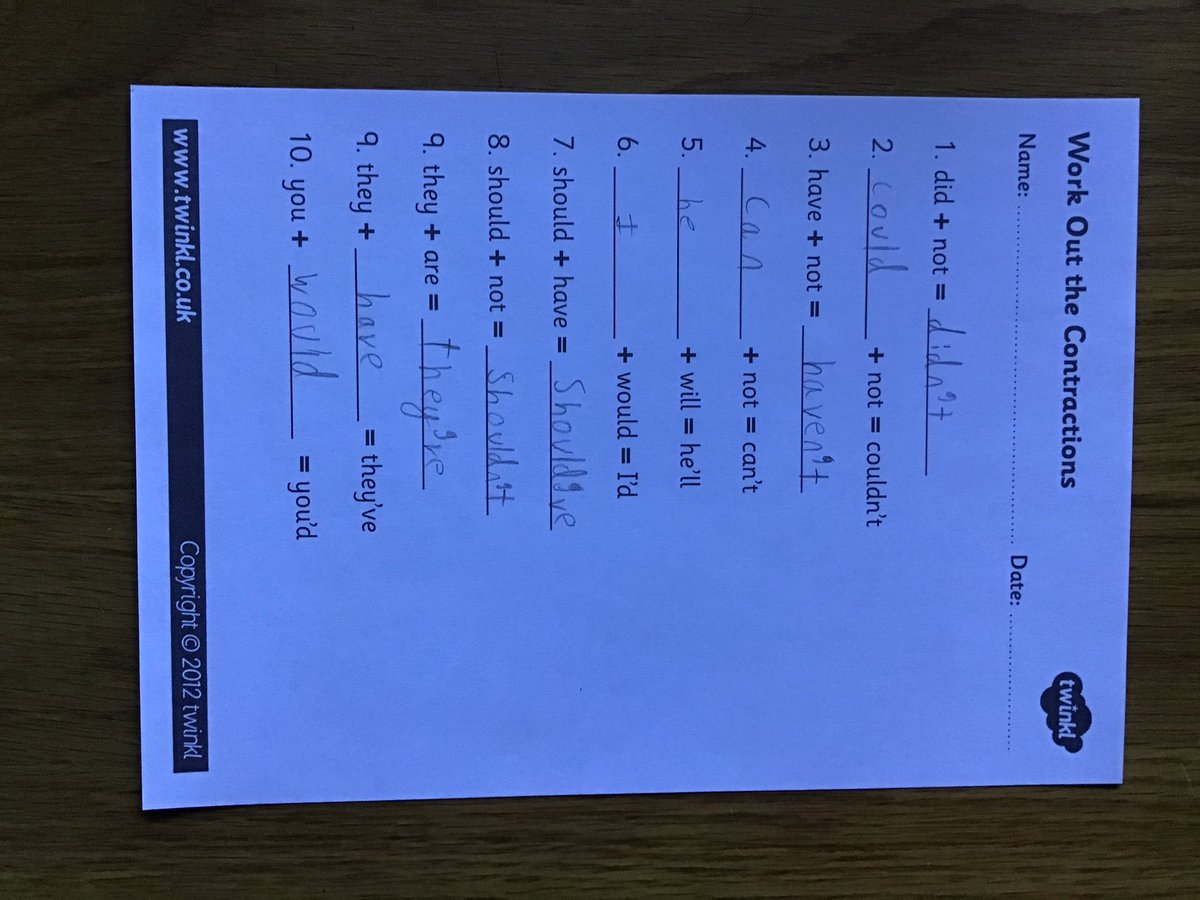 Work Out the Contractions
twinkl
Name: ........................ Date: ........................
1. did + not = didn't
2. could + not = couldn't
3. have + not = haven't
4. Can + not = can't
5. he + will = he'll
6. I + would = I'd
7. should + have = Should've
8. should + not = Shouldn't
9. they + are = they're
9. they + have = they've
10. you + would = you'd
www.twinkl.co.uk Copyright © 2012 twinkl